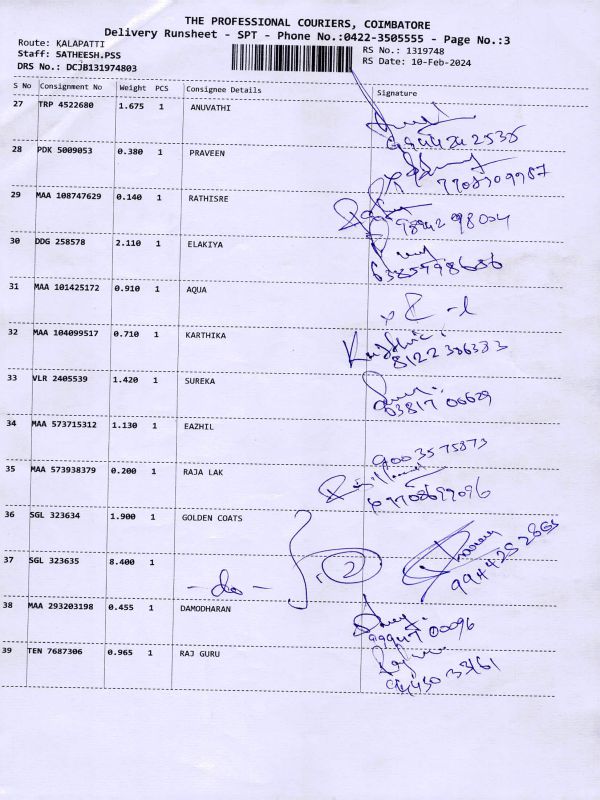 THE PROFESSIONAL COURIERS, COIMBATORE
Delivery Runsheet - SPT - Phone No.:0422-3505555 - Page No.:3
Route: KALAPATTI
RS No.: 1319748
Staff: SATHEESH.PSS
RS Date: 10-Feb-2024
DRS No.: DCJB131974803
S No Consignment No Weight PCS Consignee Details Signature
27 TRP 4522680 1.675 1 ANUVATHI
28 PDK 5009053 0.380 1 PRAVEEN
29 MAA 108747629 0.140 1 RATHISRE
30 DDG 258578 2.110 1 ELAKIYA
31 MAA 101425172 0.910 1 AQUA
32 MAA 104099517 0.710 1 KARTHIKA
8122386383
33 VLR 2405539 1.420 1 SUREKA
34 MAA 573715312 1.130 1 EAZHIL
9003575873
35 MAA 573938379 0.200 1 RAJA LAK
36 SGL 323634 1.900 1 GOLDEN COATS
37 SGL 323635 8.400 1 -do- 2
38 MAA 293203198 0.455 1 DAMODHARAN
39 TEN 7687306 0.965 1 RAJ GURU